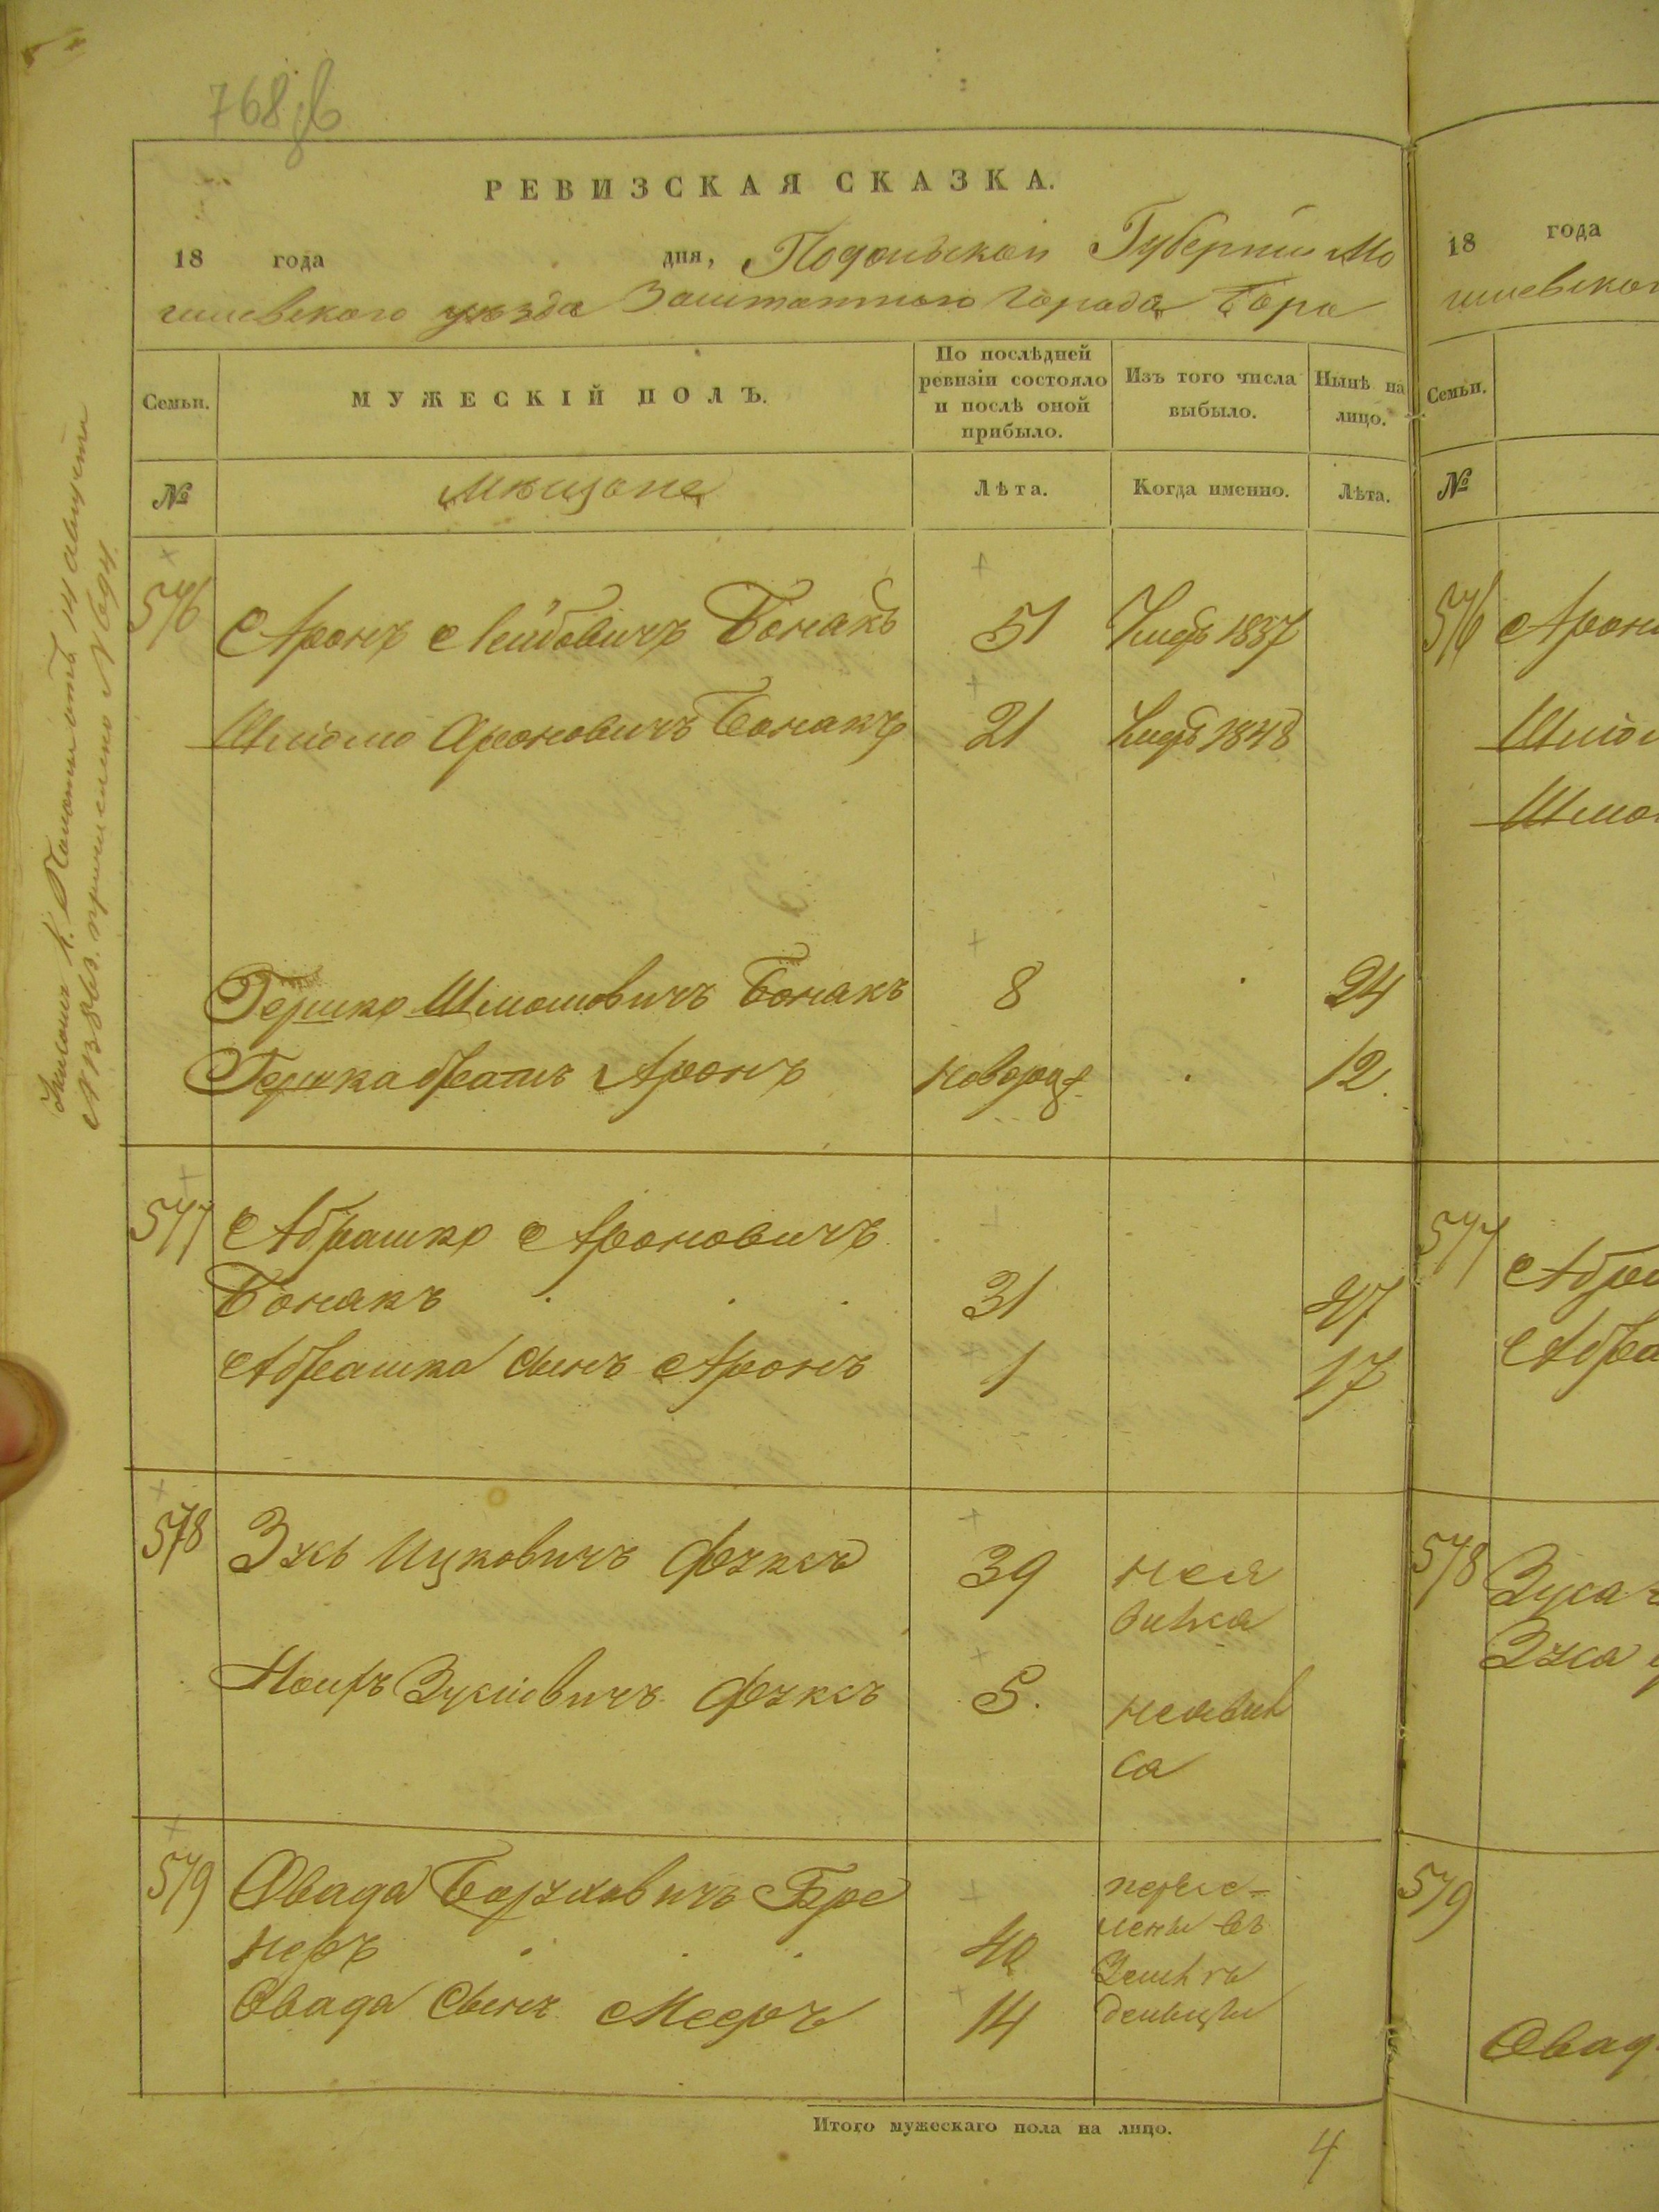 768
РЕВИЗСКАЯ СКАЗКА.
18 года дня, Подольской Губернии Мо
гилевского уезда Заштатного Города Бара
Семьи.
МУЖЕСКІЙ ПОЛЪ.
По послѣдней ревизіи состояло и послѣ оной прибыло.
Изъ того числа выбыло.
Нынѣ на лицо.
№
Мѣщане
Лѣта.
Когда именно.
Лѣта.
576 Аронъ Лейбовичъ Бонакъ 51 1837
Шлиомо Ароновичъ Бонакъ 21 1848
Гершко Шлиомовичъ Бонакъ 8 24
Гершка братъ Аронъ новорож 12
577 Абрашко Ароновичъ
Бонакъ 31 47
Абрашка сынъ Аронъ 1 17
578 Зусь Ицковичъ Фуксъ 39 нея
вился
Зусіовичъ Фуксъ 5. неявил
ся
579 Овадя Берковичъ Бре
неръ 40 перече-
лены въ
Овадя сынъ Мееръ 14 Земле
дельцы
Итого мужескаго пола на лицо.
4
18 года
гилевског
Семьи.
№
576 Арон
Шлио
Шлио
577 Абра
Абра
578 Зуса
Зуса
579
Овад